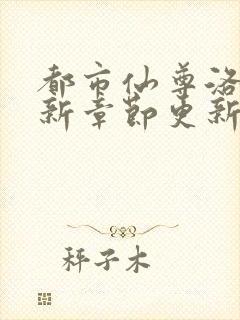 都市仙尊洛
新章节更新
秤子木